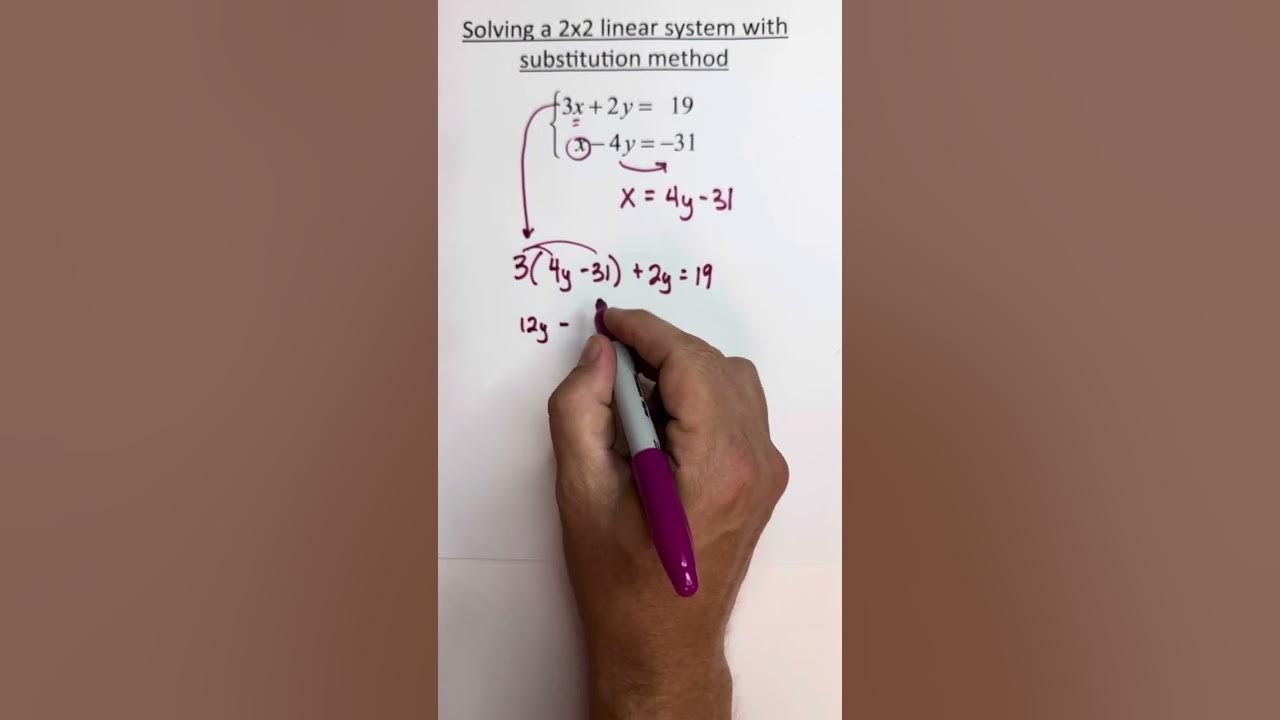 Solving a 2x2 linear system with
substitution method
3x + 2y = 19
x - 4y = -31
x = 4y - 31
3(4y - 31) + 2y = 19
12y -